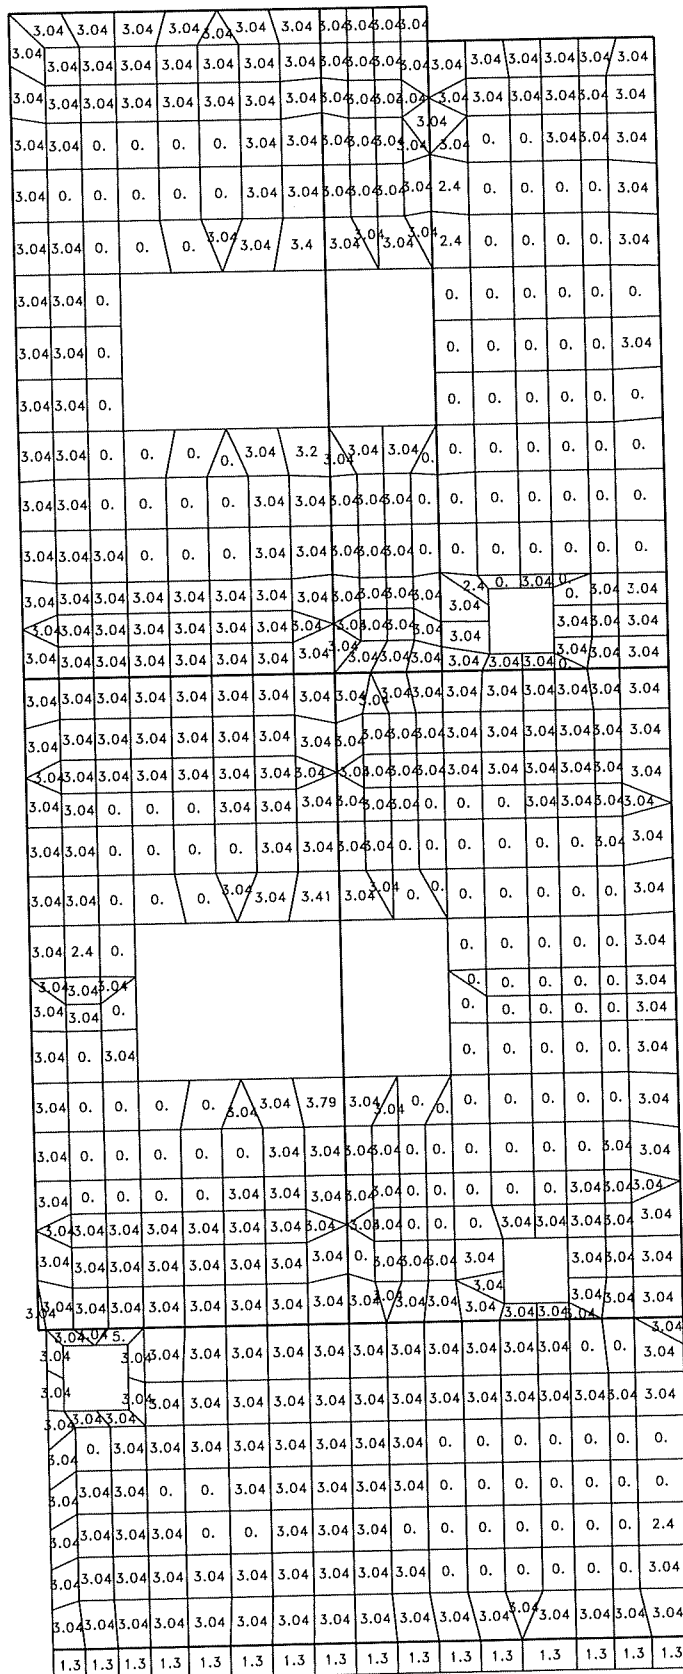 3.04 3.04 3.04 3.04 3.04 3.04 3.04 3.04 3.04 3.04 3.04
3.04 3.04 3.04 3.04 3.04 3.04 3.04 3.04 3.04 3.04 3.04 3.04 3.04 3.04 3.04 3.04 3.04 3.04
3.04 3.04 3.04 3.04 3.04 3.04 3.04 3.04 3.04 3.04 3.04 3.04 3.04 3.04 3.04 3.04
3.04
3.04 3.04 0. 0. 0. 3.04 3.04 3.04 3.04 3.04 3.04 3.04 0. 0. 3.04 3.04 3.04
3.04 0. 0. 0. 0. 3.04 3.04 3.04 3.04 3.04 3.04 2.4 0. 0. 0. 0. 3.04
3.04 3.04 0. 0. 0. 3.04 3.04 3.4 3.04 3.04 3.04 3.04 2.4 0. 0. 0. 0. 3.04
3.04 3.04 0. 0. 0. 0. 0. 0. 0.
3.04 3.04 0. 0. 0. 0. 0. 0. 3.04
3.04 3.04 0. 0. 0. 0. 0. 0. 0.
3.04 3.04 0. 0. 0. 0. 3.04 3.2 3.04 3.04 3.04 0. 0. 0. 0. 0. 0. 0.
3.04 3.04 0. 0. 0. 0. 3.04 3.04 3.04 3.04 3.04 0. 0. 0. 0. 0. 0. 0.
3.04 3.04 3.04 0. 0. 0. 3.04 3.04 3.04 3.04 3.04 0. 0. 0. 0. 0. 0. 0.
2.4 0. 3.04 0.
3.04 3.04 3.04 3.04 3.04 3.04 3.04 3.04 3.04 3.04 3.04 3.04 3.04 0. 3.04 3.04
3.04 3.04 3.04 3.04 3.04 3.04 3.04 3.04 3.04 3.04 3.04 3.04 3.04 3.04 3.04
3.04 3.04 3.04 3.04 3.04 3.04 3.04 3.04 3.04 3.04 3.04 3.04 3.04 3.04 3.04 0. 3.04 3.04 3.04
3.04 3.04 3.04 3.04 3.04 3.04 3.04 3.04 3.04 3.04 3.04 3.04 3.04 3.04 3.04 3.04 3.04 3.04
3.04 3.04 3.04 3.04 3.04 3.04 3.04 3.04 3.04 3.04 3.04 3.04 3.04 3.04 3.04 3.04 3.04
3.04 3.04 3.04 3.04 3.04 3.04 3.04 3.04 3.04 3.04 3.04 3.04 3.04 3.04 3.04 3.04 3.04 3.04
3.04 3.04 0. 0. 3.04 3.04 3.04 3.04 3.04 3.04 0. 0. 0. 3.04 3.04 3.04 3.04
3.04 3.04 0. 0. 0. 3.04 3.04 3.04 3.04 0. 0. 0. 0. 0. 0. 3.04 3.04
3.04 3.04 0. 0. 0. 3.04 3.04 3.41 3.04 3.04 0. 0. 0. 0. 0. 0. 0. 3.04
3.04 2.4 0. 0. 0. 0. 0. 0. 3.04
3.04 3.04 3.04 0. 0. 0. 0. 0. 3.04
3.04 3.04 0. 0. 0. 0. 0. 0. 3.04
3.04 0. 3.04 0. 0. 0. 0. 0. 3.04
3.04 0. 0. 0. 0. 3.04 3.04 3.79 3.04 3.04 0. 0. 0. 0. 0. 0. 0. 3.04
3.04 0. 0. 0. 0. 3.04 3.04 3.04 3.04 3.04 0. 0. 0. 0. 0. 3.04 3.04
3.04 0. 0. 0. 3.04 3.04 3.04 3.04 3.04 0. 0. 0. 0. 0. 3.04 3.04 3.04
3.04 3.04 3.04 3.04 3.04 3.04 3.04 3.04 3.04 3.04 0. 0. 0. 3.04 3.04 3.04 3.04 3.04
3.04 3.04 3.04 3.04 3.04 3.04 3.04 0. 3.04 3.04 3.04 3.04 3.04 3.04 3.04
3.04 3.04 3.04 3.04 3.04 3.04 3.04 3.04 3.04 3.04 3.04 3.04 3.04 3.04 3.04 3.04 3.04 3.04 3.04 3.04
3.04 3.04 5. 3.04
3.04 3.04 3.04 3.04 3.04 3.04 3.04 3.04 3.04 3.04 3.04 3.04 0. 0. 3.04
3.04 3.04 3.04 3.04 3.04 3.04 3.04 3.04 3.04 3.04 3.04 3.04 3.04 3.04 3.04
3.04 3.04 3.04
3.04 0. 3.04 3.04 3.04 3.04 3.04 3.04 3.04 0. 0. 0. 0. 0. 0.
3.04 3.04 3.04 0. 0. 3.04 3.04 3.04 3.04 0. 0. 0. 0. 0. 0.
3.04 3.04 3.04 3.04 0. 0. 3.04 3.04 3.04 0. 0. 0. 0. 0. 0. 2.4
3.04 3.04 3.04 3.04 3.04 3.04 3.04 3.04 3.04 3.04 0. 0. 0. 0. 0. 3.04
3.04 3.04 3.04 3.04 3.04 3.04 3.04 3.04 3.04 3.04 3.04 3.04 3.04 3.04 3.04 3.04 3.04
1.3 1.3 1.3 1.3 1.3 1.3 1.3 1.3 1.3 1.3 1.3 1.3 1.3 1.3 1.3